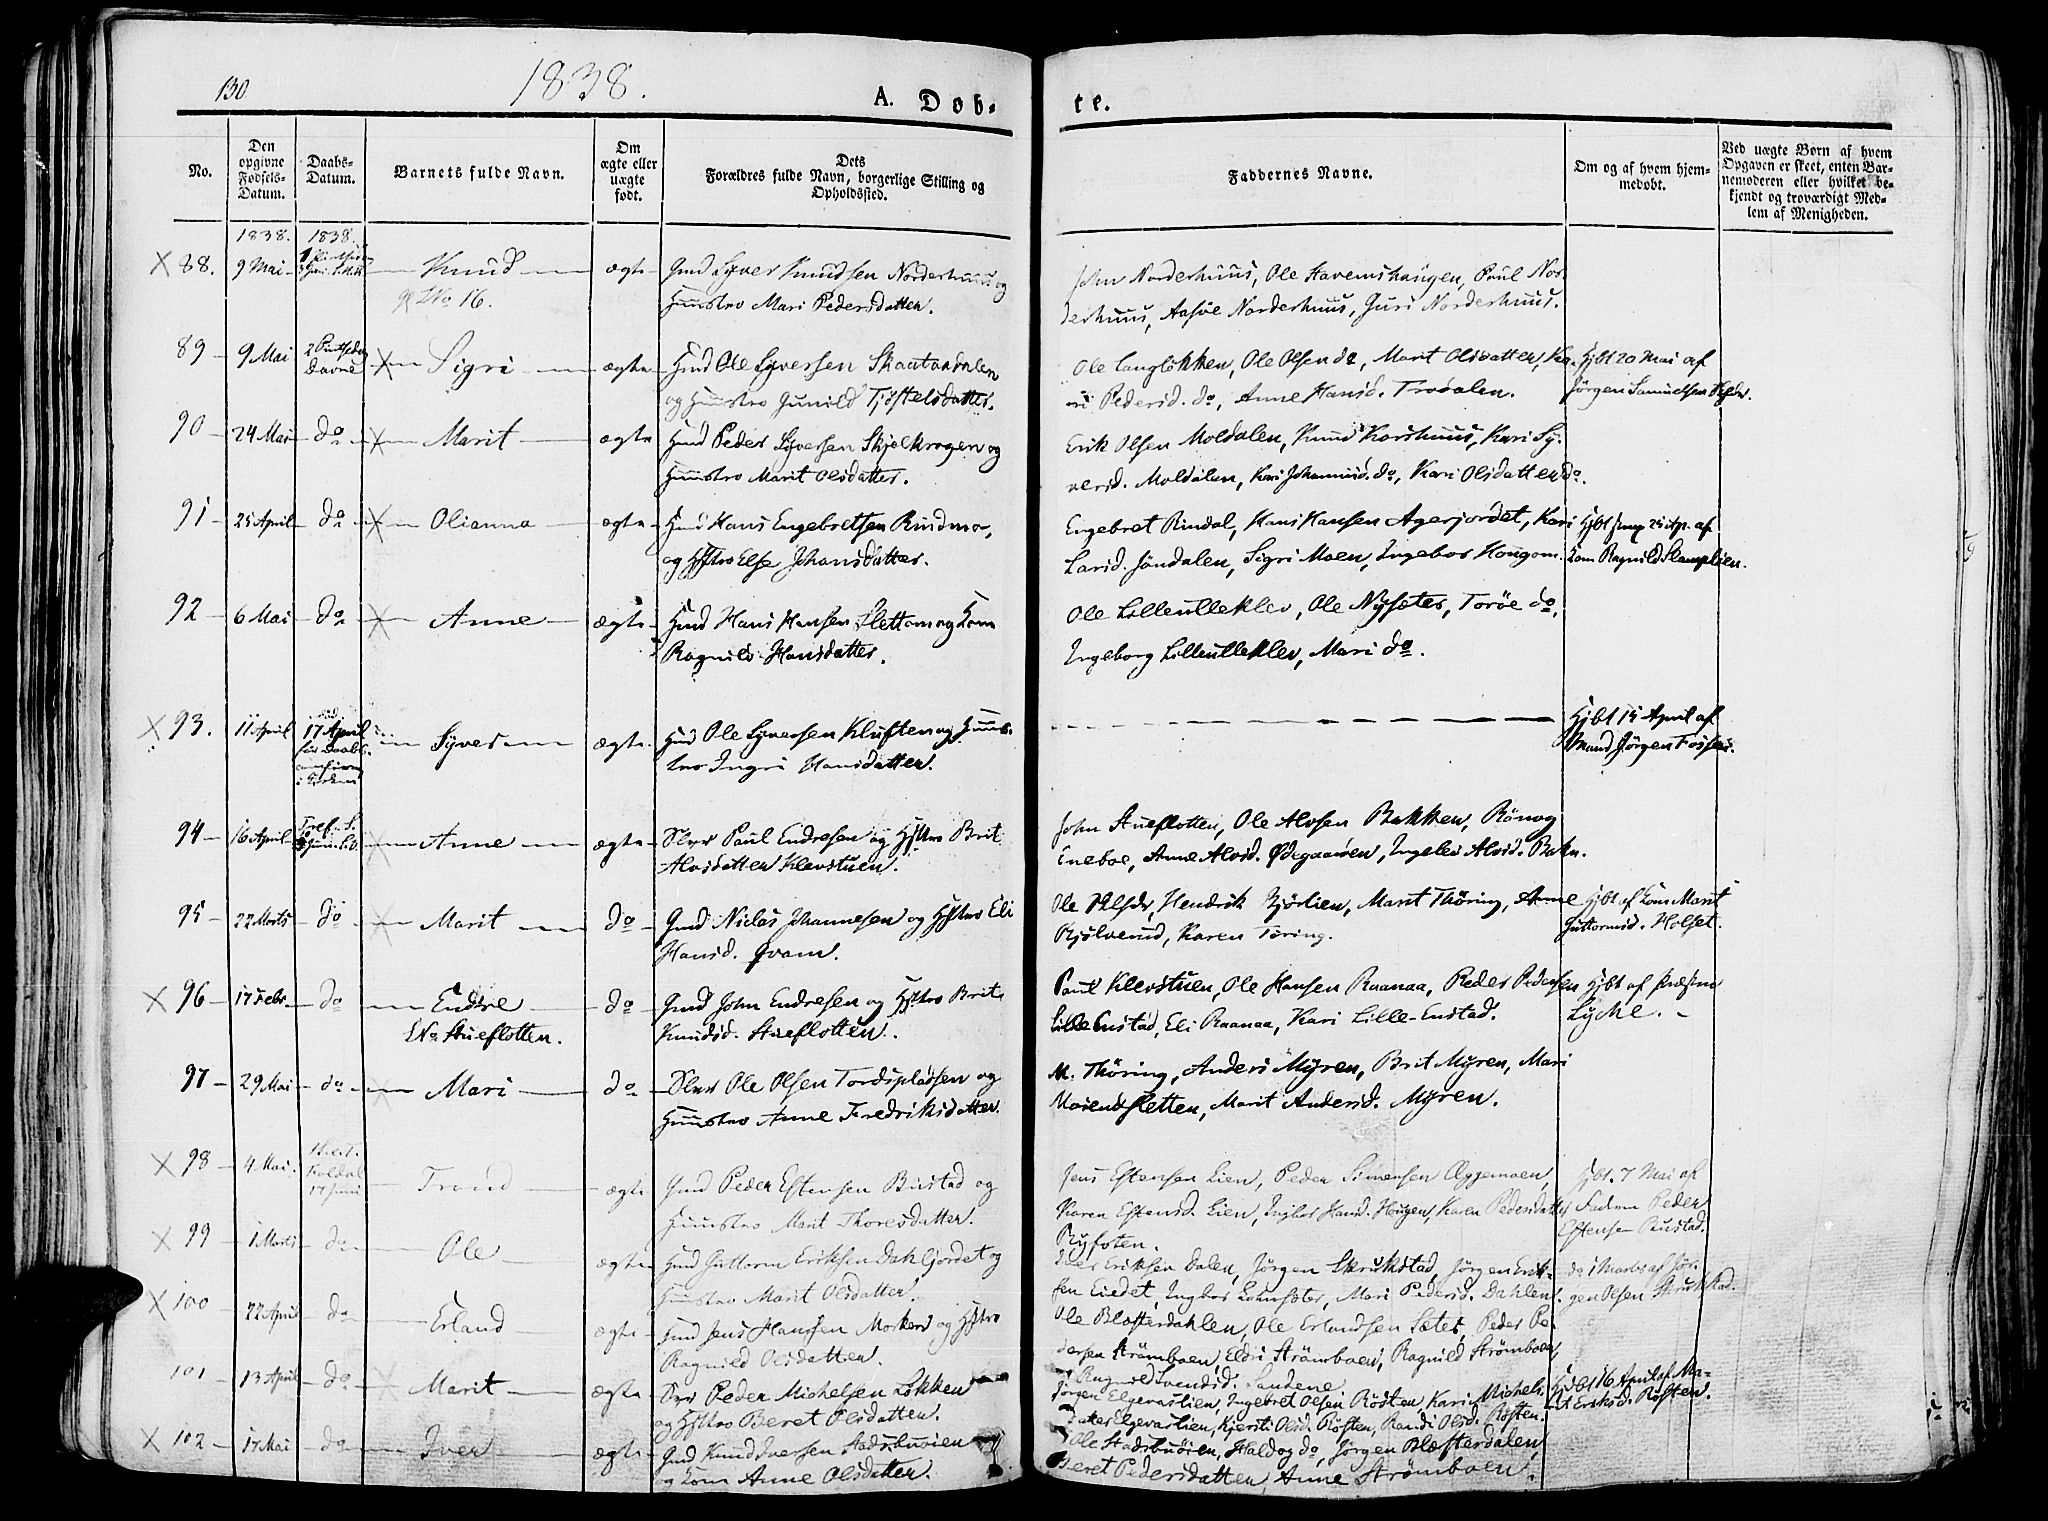 130
1838.
A. Døb-
te.
No.
Den opgivne Fødsels-Datum.
Daabs-Datum.
Barnets fulde Navn.
Om ægte eller uægte født.
Dets Forældres fulde Navn, borgerlige Stilling og Opholdssted.
Faddernes Navne.
Om og af hvem hjemmedøbt.
Ved uægte Børn af hvem Opgaven er skeet, enten Barnemoderen eller hvilket bekjendt og troværdigt Medlem af Menigheden.
1838. 1838.
88. 9 Mai Knud ægte Gmd Syver Knudsen Norderhuus og
No 16. Huustro Mari Pedersdatter.
John Norderhuus, Ole Haverhaugen, Paul Nor-
derhuus, Aasøe Norderhuus, Guri Norderhuus.
89 9 Mai 2 Pintsedag Sigri ægte Hmd Ole Syversen Skaatendalen
og Huustro Gunild Tjøstelsdatter.
Ole Langløkken, Ole Olsen do, Marit Olsdatter, Ka- Hjbt 20 Mai af
ri Pedersd. do, Anne Hansd. Trodalen. Jørgen
90 24 Mai do Marit ægte Hmd Peder Syversen Skjelkrogen og
Huustro Marit Olsdatter.
Erik Olsen Moldalen, Knud Korshuus, Kari Sy-
versd. Moldalen, Kari Johannisd. do, Kari Olsdatter do.
91 25 April do Olianna ægte Hmd Hans Engebretsen Rindmo,
og Hstro Else Johansdatter.
Engebret Rindal, Hans Hansen Agerjordet, Kari Hjbt
Larsd. Jøndalen, Sigri Moen, Ingebor Hougom. Kom Ragnild
92 6 Mai do Anne ægte Hmd Hans Hansen Slettom og Kone
Ragnild Hansdatter.
Ole Lilleulleklev, Ole Nysæter, Torøe do,
Ingeborg Lilleulleklev, Mari do.
93. 11 April 17 April Syver ægte Hmd Ole Syversen Kluften og Huus-
tro Ingri Hansdatter.
Hjbt 15 April af
Mand Jørgen Fosse.
94 16 April Anne ægte Slvr Paul Endresen og Hstro Brit
Alvsdatter Klevstuen.
John Stueflotten, Ole Alvsen Bakken, Rønog
Eneboe, Anne Alvsd. Ødegaarden, Ingeleiv Alvsd. Bakn.
95 22 Marts do Marit do Gmd Niclas Johannesen og Hstro Eli
Hansd. Qvam.
Hendrik Bjørlien, Marit Thøring, Anne Hjbt af Kone Marit
Kjølverud, Karen Tøring. Guttormsd. Holset.
96 17 Febr. do Endre do Gmd John Endresen og Hstro Brit
Stueflotten. Knudsd. Stueflotten.
Paul Klevstuen, Ole Hansen Raanaa, Peder Pedersen Hjbt af Præsten
Lille Enstad, Eli Raanaa, Kari Lille-Enstad. Lyche.
97 29 Mai do Mari do Slvr Ole Olsen Tordspladsen og
Huustro Anne Fredriksdatter.
M. Thøring, Anders Myren, Brit Myren, Mari
Moiendsletten, Marit Andersd. Myren.
98 4 Mai. 17 Juni Trond ægte Gmd Peder Estensen Bustad og
Huustro Marit Thoresdatter.
Jens Estensen Lien, Peder Simensen Æggemoen, Hjbt. 7 Mai af
Karen Estensd. Lien, Ingbor Hansd. Haugen, Karen Pedersdatter Fadren Peder
Ryfoten. Estensen Bustad.
99 1 Marts do Ole ægte Hmd Guttorm Eriksen Dahljordet og
Huustro Marit Olsdatter.
Iver Eriksen Dalen, Jørgen Skrukstad, Jørgen Erik- do 1 Marts af Jør-
sen Eiedet, Ingbor Lohnsæter, Mari Pedersd. Dahlen. gen Olsen Skrukstad.
100 22 April do Erland ægte Hmd Jens Hansen Morken og Hstro
Ragnild Olsdatter.
Ole Blæsterdahlen, Ole Erlandsen Sæter, Peder Pe-
dersen Strømboen, Eldri Strømboen, Ragnild Strømboen,
101 13 April do Marit ægte Slvr Peder Michelsen Løkken
og Hstro Beret Olsdatter.
Jørgen Elgevaslien, Ingebret Olsen Røsten, Kari Michels- Hjbt 16 April af Ma-
datter Elgevaslien, Kjersti Olsd. Røsten, Randi Olsd. Røsten. rit Eriksd. Røsten.
102 17 Mai do Iver ægte Gmd Knud Iversen Stadsbuøien
og Kone Anne Olsdatter.
Ole Stadsbuøien, Haldog do, Jørgen Blæsterdalen,
Beret Pedersdatter, Anne Strømboen.